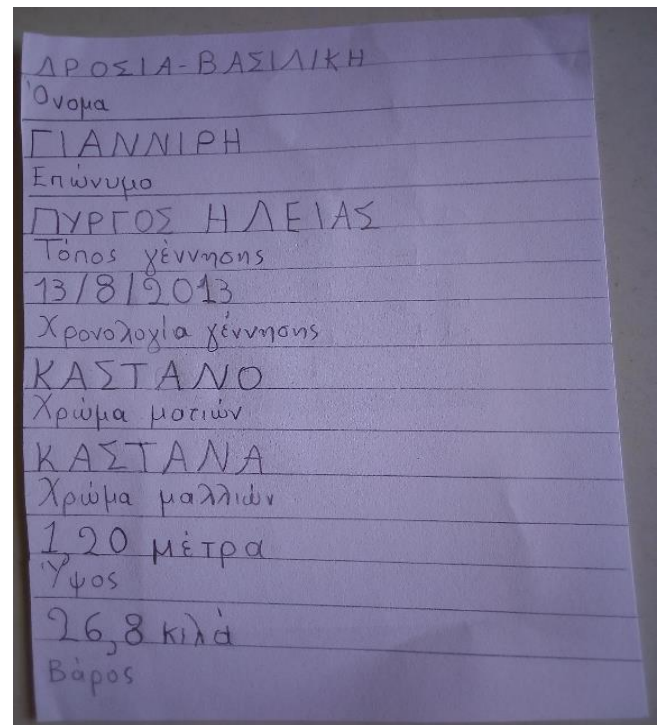 ΔΡΟΣΙΑ-ΒΑΣΙΛΙΚΗ
Όνομα
ΓΙΑΝΝΙΡΗ
Επώνυμο
ΠΥΡΓΟΣ ΗΛΕΙΑΣ
Τόπος γέννησης
13/8/2013
Χρονολογία γέννησης
ΚΑΣΤΑΝΟ
Χρώμα ματιών
ΚΑΣΤΑΝΑ
Χρώμα μαλλιών
1,20 μέτρα
Ύψος
26,8 κιλά
Βάρος